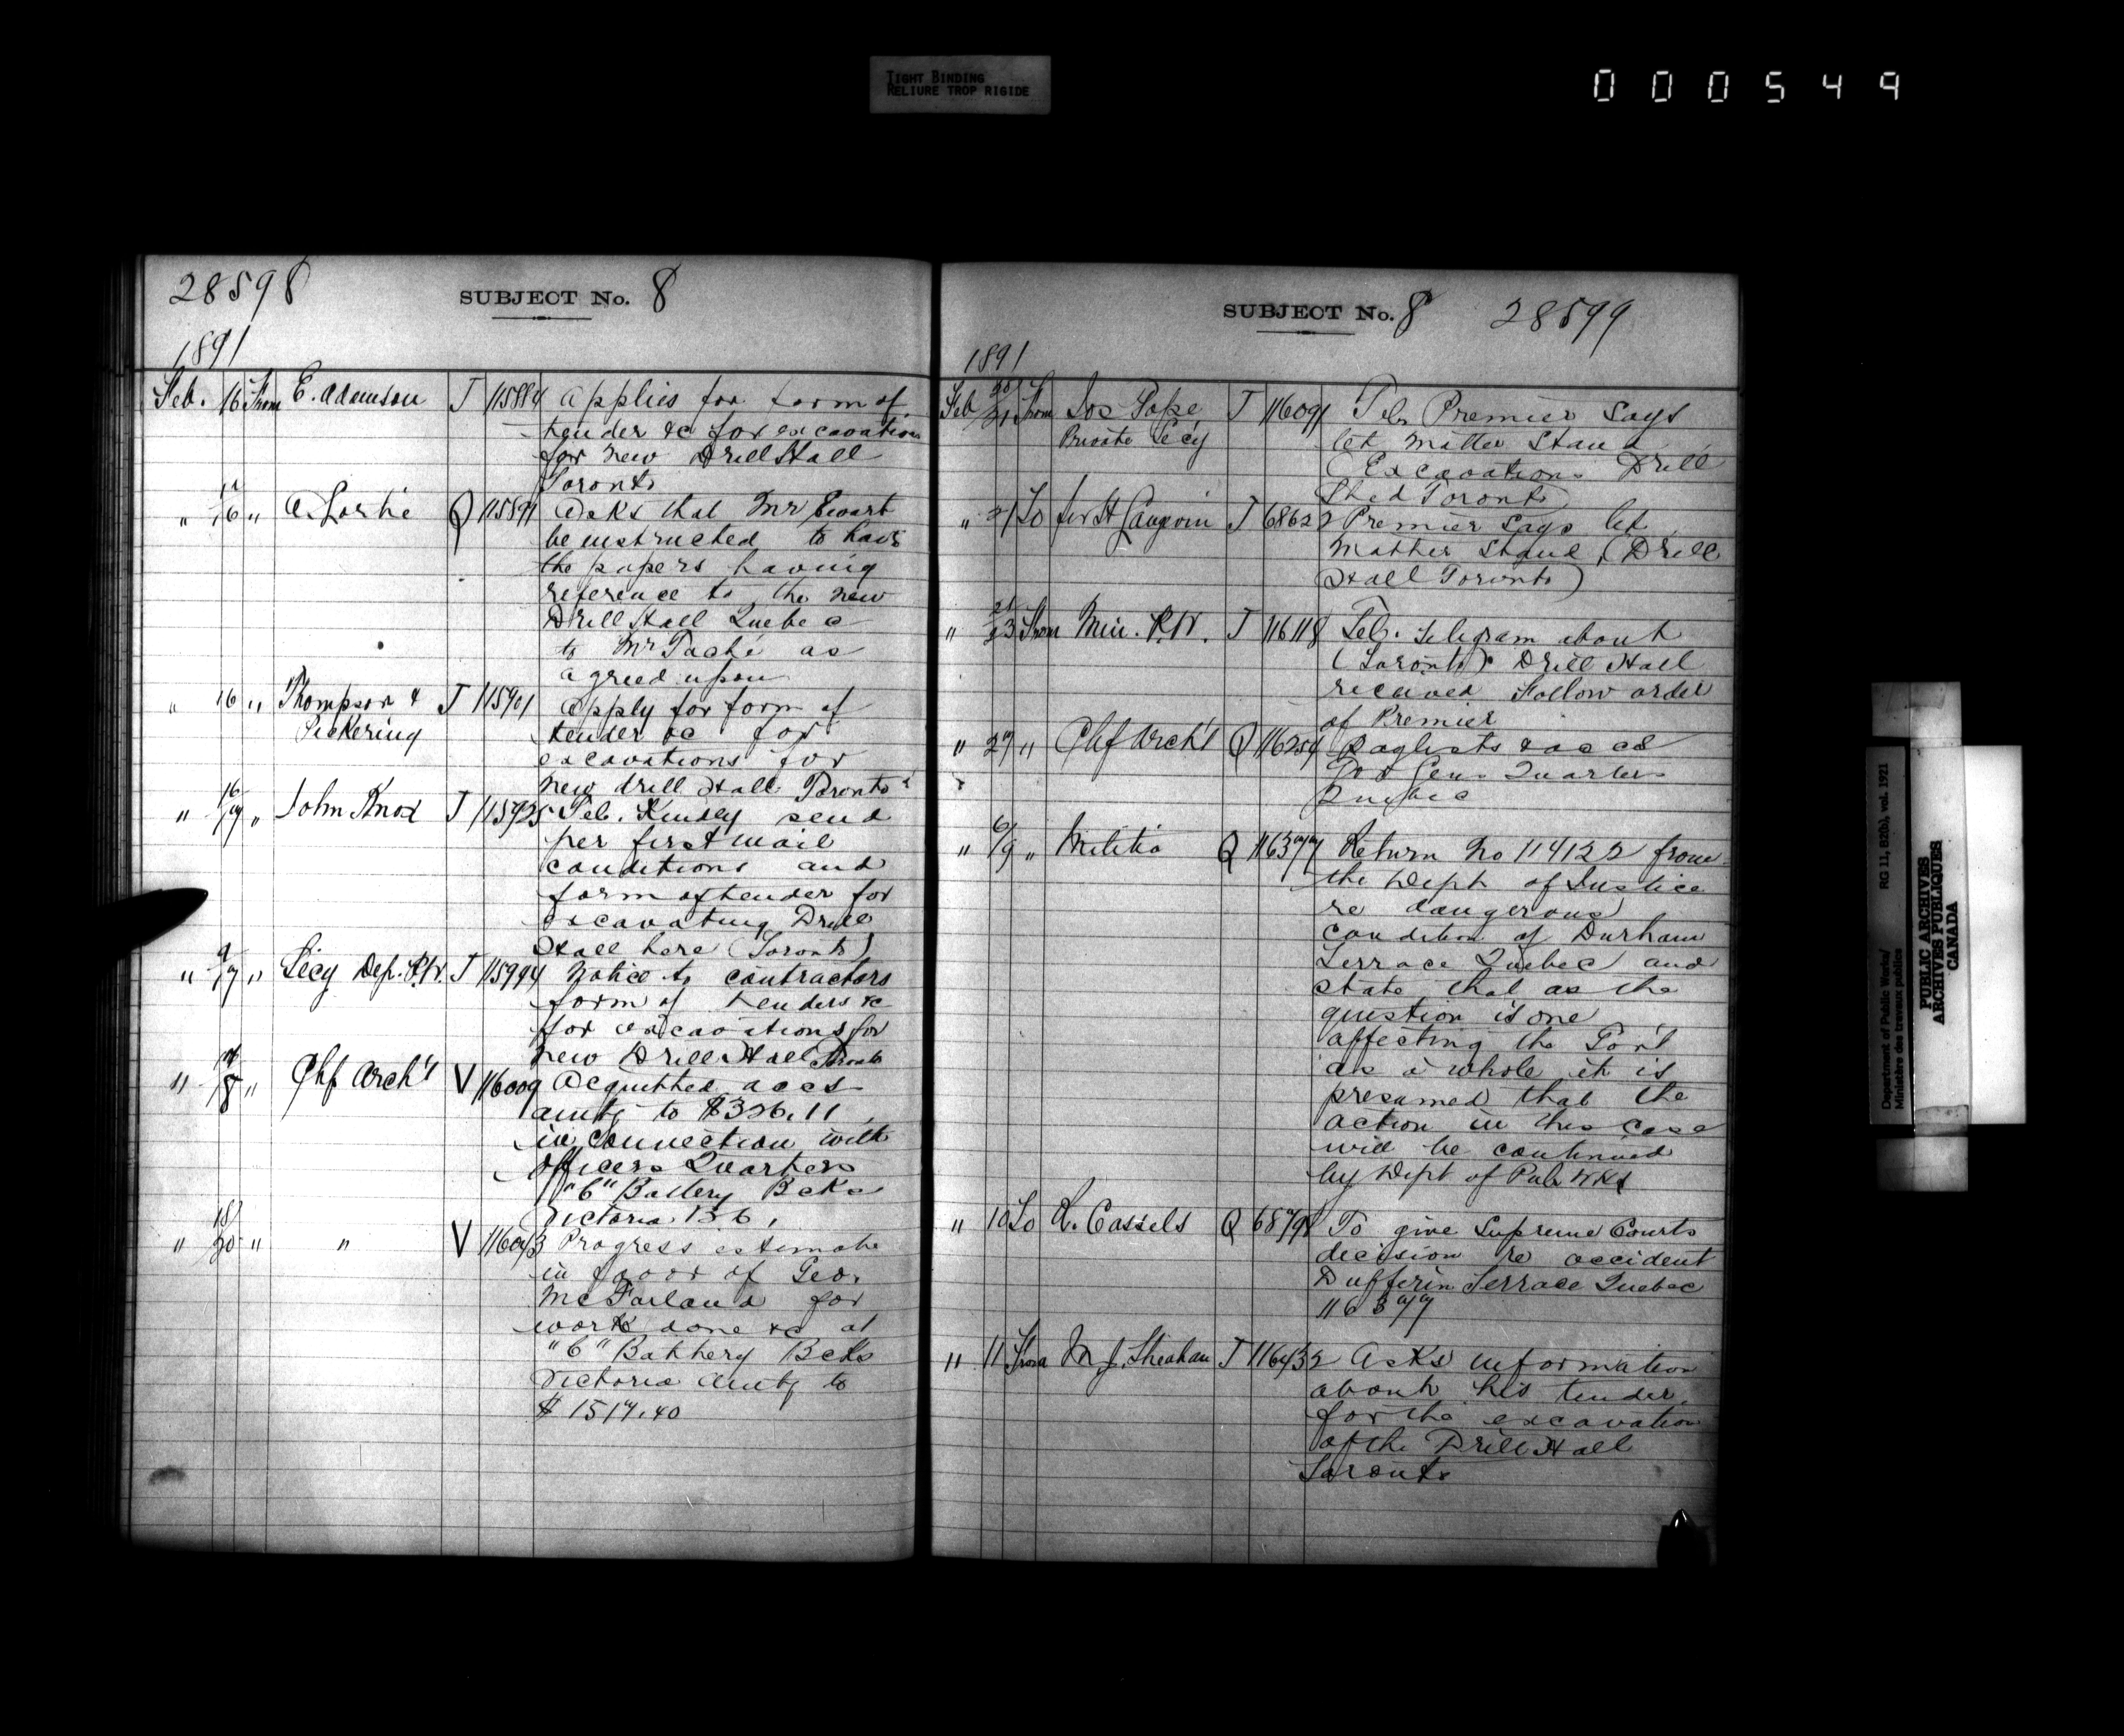 TIGHT BINDING
RELIURE TROP RIGIDE
000549
28598
SUBJECT No. 8
1891
Feb. 16 From E. Adamson T 115884 Applies for form of
tender &c for excavation
for new Drill Hall
Toronto
" 16 " A. Q 115891 Asks that Mr Ewart
be instructed to have
the papers having
reference to the new
Drill Hall Quebec
to Mr Taché as
agreed upon
" 16 " Thompson & T 115901 Apply for form of
Pickering tender &c for
excavations for
new drill Hall Toronto
" 16/17 " John Knox T 115925 Tel. Kindly send
per first mail
conditions and
form of tender for
excavating Drill
Hall here (Toronto)
" 9/17 " Secy Dep. P.W. T 115994 Notice to contractors
form of tenders &c
for excavations for
new Drill Hall Toronto
" 18 " Chf Arch't V 116009 Acquitted accs
amtg to $326.11
in connection with
Officers Quarters
"C" Battery Bcks
Victoria B.C.
" 18/20 " " V 116073 Progress estimate
in favor of Geo.
McFarland for
work done &c at
"C" Battery Bcks
Victoria amtg to
$1517.40
SUBJECT No. 8 28599
1891
Feb 20/21 From Jos Pope T 116091 Tel. Premier says
Private Secy let matter stand
(Excavations Drill
Shed Toronto)
" 21 To Sir H Langevin T 68622 Premier says let
matter stand (Drill
Hall Toronto)
" 21/23 From Min. P.W. T 116118 Tel. Telegram about
(Toronto) Drill Hall
received Follow order
of Premier
" 27 " Chf Arch't Q 116254 Paylists & accs
Gov Gens Quarters
Quebec
" 6/9 " Militia Q 116377 Return No 114122 from
the Dept of Justice
re dangerous
condition of Durham
Terrace Quebec and
state that as the
question is one
affecting the Gov't
as a whole it is
presumed that the
action in this case
will be continued
by Dept of Pub Wks
" 10 To R. Cassels Q 68798 To give Supreme Courts
decision re accident
Dufferin Terrace Quebec
116377
" 11 From M J. Sheahan T 116432 Asks information
about his tender
for the excavation
of the Drill Hall
Toronto
Department of Public Works/
Ministère des travaux publics
RG 11, B2(b), vol. 1921
PUBLIC ARCHIVES
ARCHIVES PUBLIQUES
CANADA